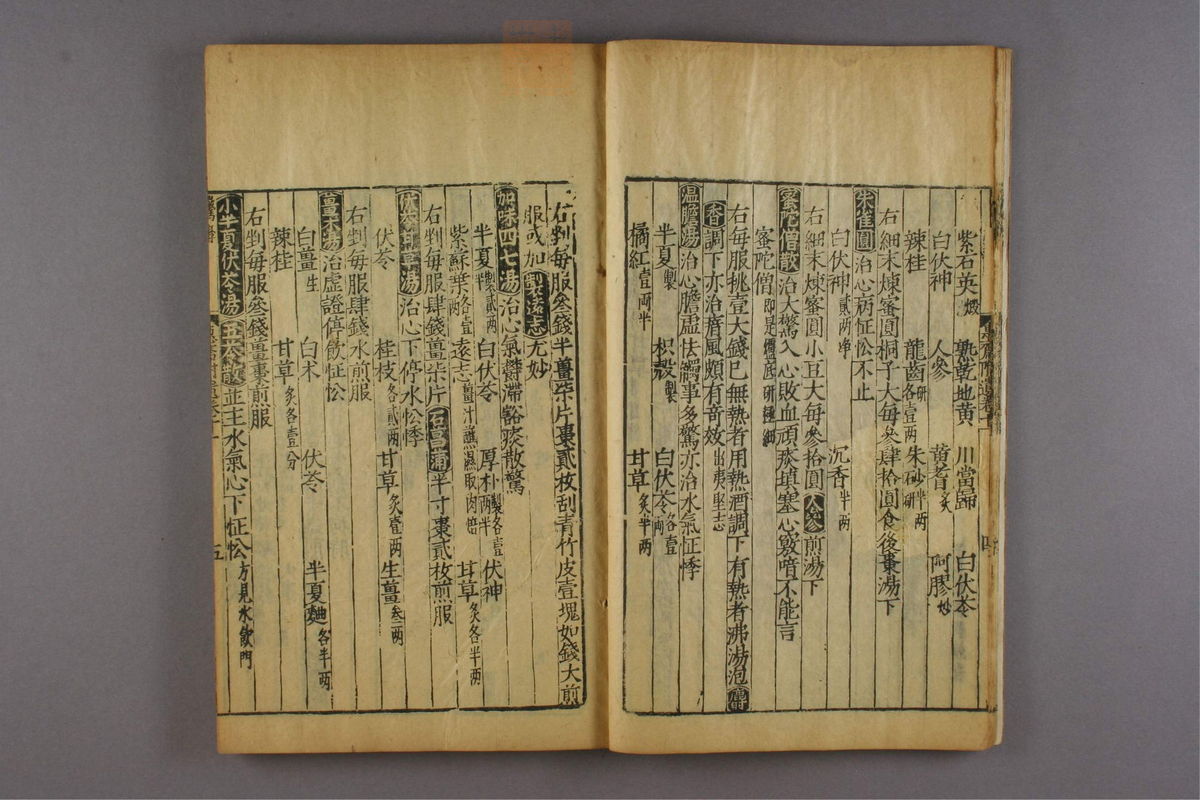 紫石英煅 熟乾地黄 川當歸 白伏苓
白伏神 人參 黄耆炙 阿膠炒
辣桂 龍齒研各壹两 朱砂半两石研
右細末煉蜜圓桐子大每叄肆拾圓食後棗湯下
朱雀圓治心病怔忪不止
白伏神貳两净 沉香半两
右細末煉蜜圓小豆大每叄拾圓人參煎湯下
蜜陀僧散治大驚入心敗血頑痰填塞心竅喑不能言
蜜陀僧即是爐底研極細
右每服挑壹大錢匕無熱者用熱酒調下有熱者沸湯泡麝
香調下亦治瘖風頗有音效出夷堅志
温膽湯治心膽虚怯觸事多驚亦治水氣怔悸
半夏製 枳殼製 白伏苓各壹两
橘紅壹两半 甘草炙半两
右剉每服叄錢半薑柒片棗貳枚刮青竹皮壹塊如錢大煎
服或加製遠志尤妙
加味四七湯治心氣欝滯豁痰散驚
半夏製貳两半 白伏苓 厚朴製各壹两半 伏神
紫蘇葉各壹两 遠志薑汁蘸濕取肉焙 耳草炙各半两
右剉每服肆錢薑柒片石菖蒲半寸棗貳枚煎服
伏苓甘草湯治心下停水忪悸
伏苓 桂枝各貳两 甘草炙壹两 生薑叁两
右剉每服肆錢水煎服
薑术湯治虚證停飲怔忪
白薑生 白术 伏苓 半夏麯各半两
辣桂 甘草炙各壹分
右剉每服叄錢薑棗煎服
小半夏伏苓湯 五苓散並主水氣心下怔忪方見水飲門